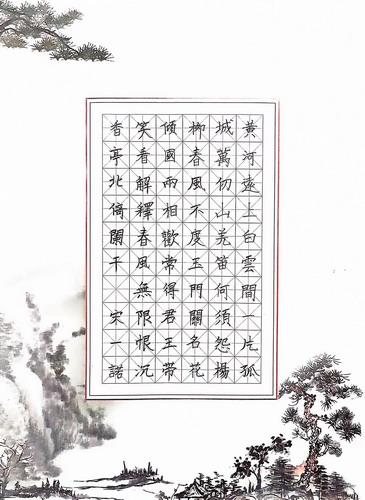 黃河遠上白雲間一片孤
城萬仞山羌笛何須怨楊
柳春風不度玉門關名花
傾國兩相歡常得君王帶
笑看解釋春風無限恨沉
香亭北倚闌干 宋一諾